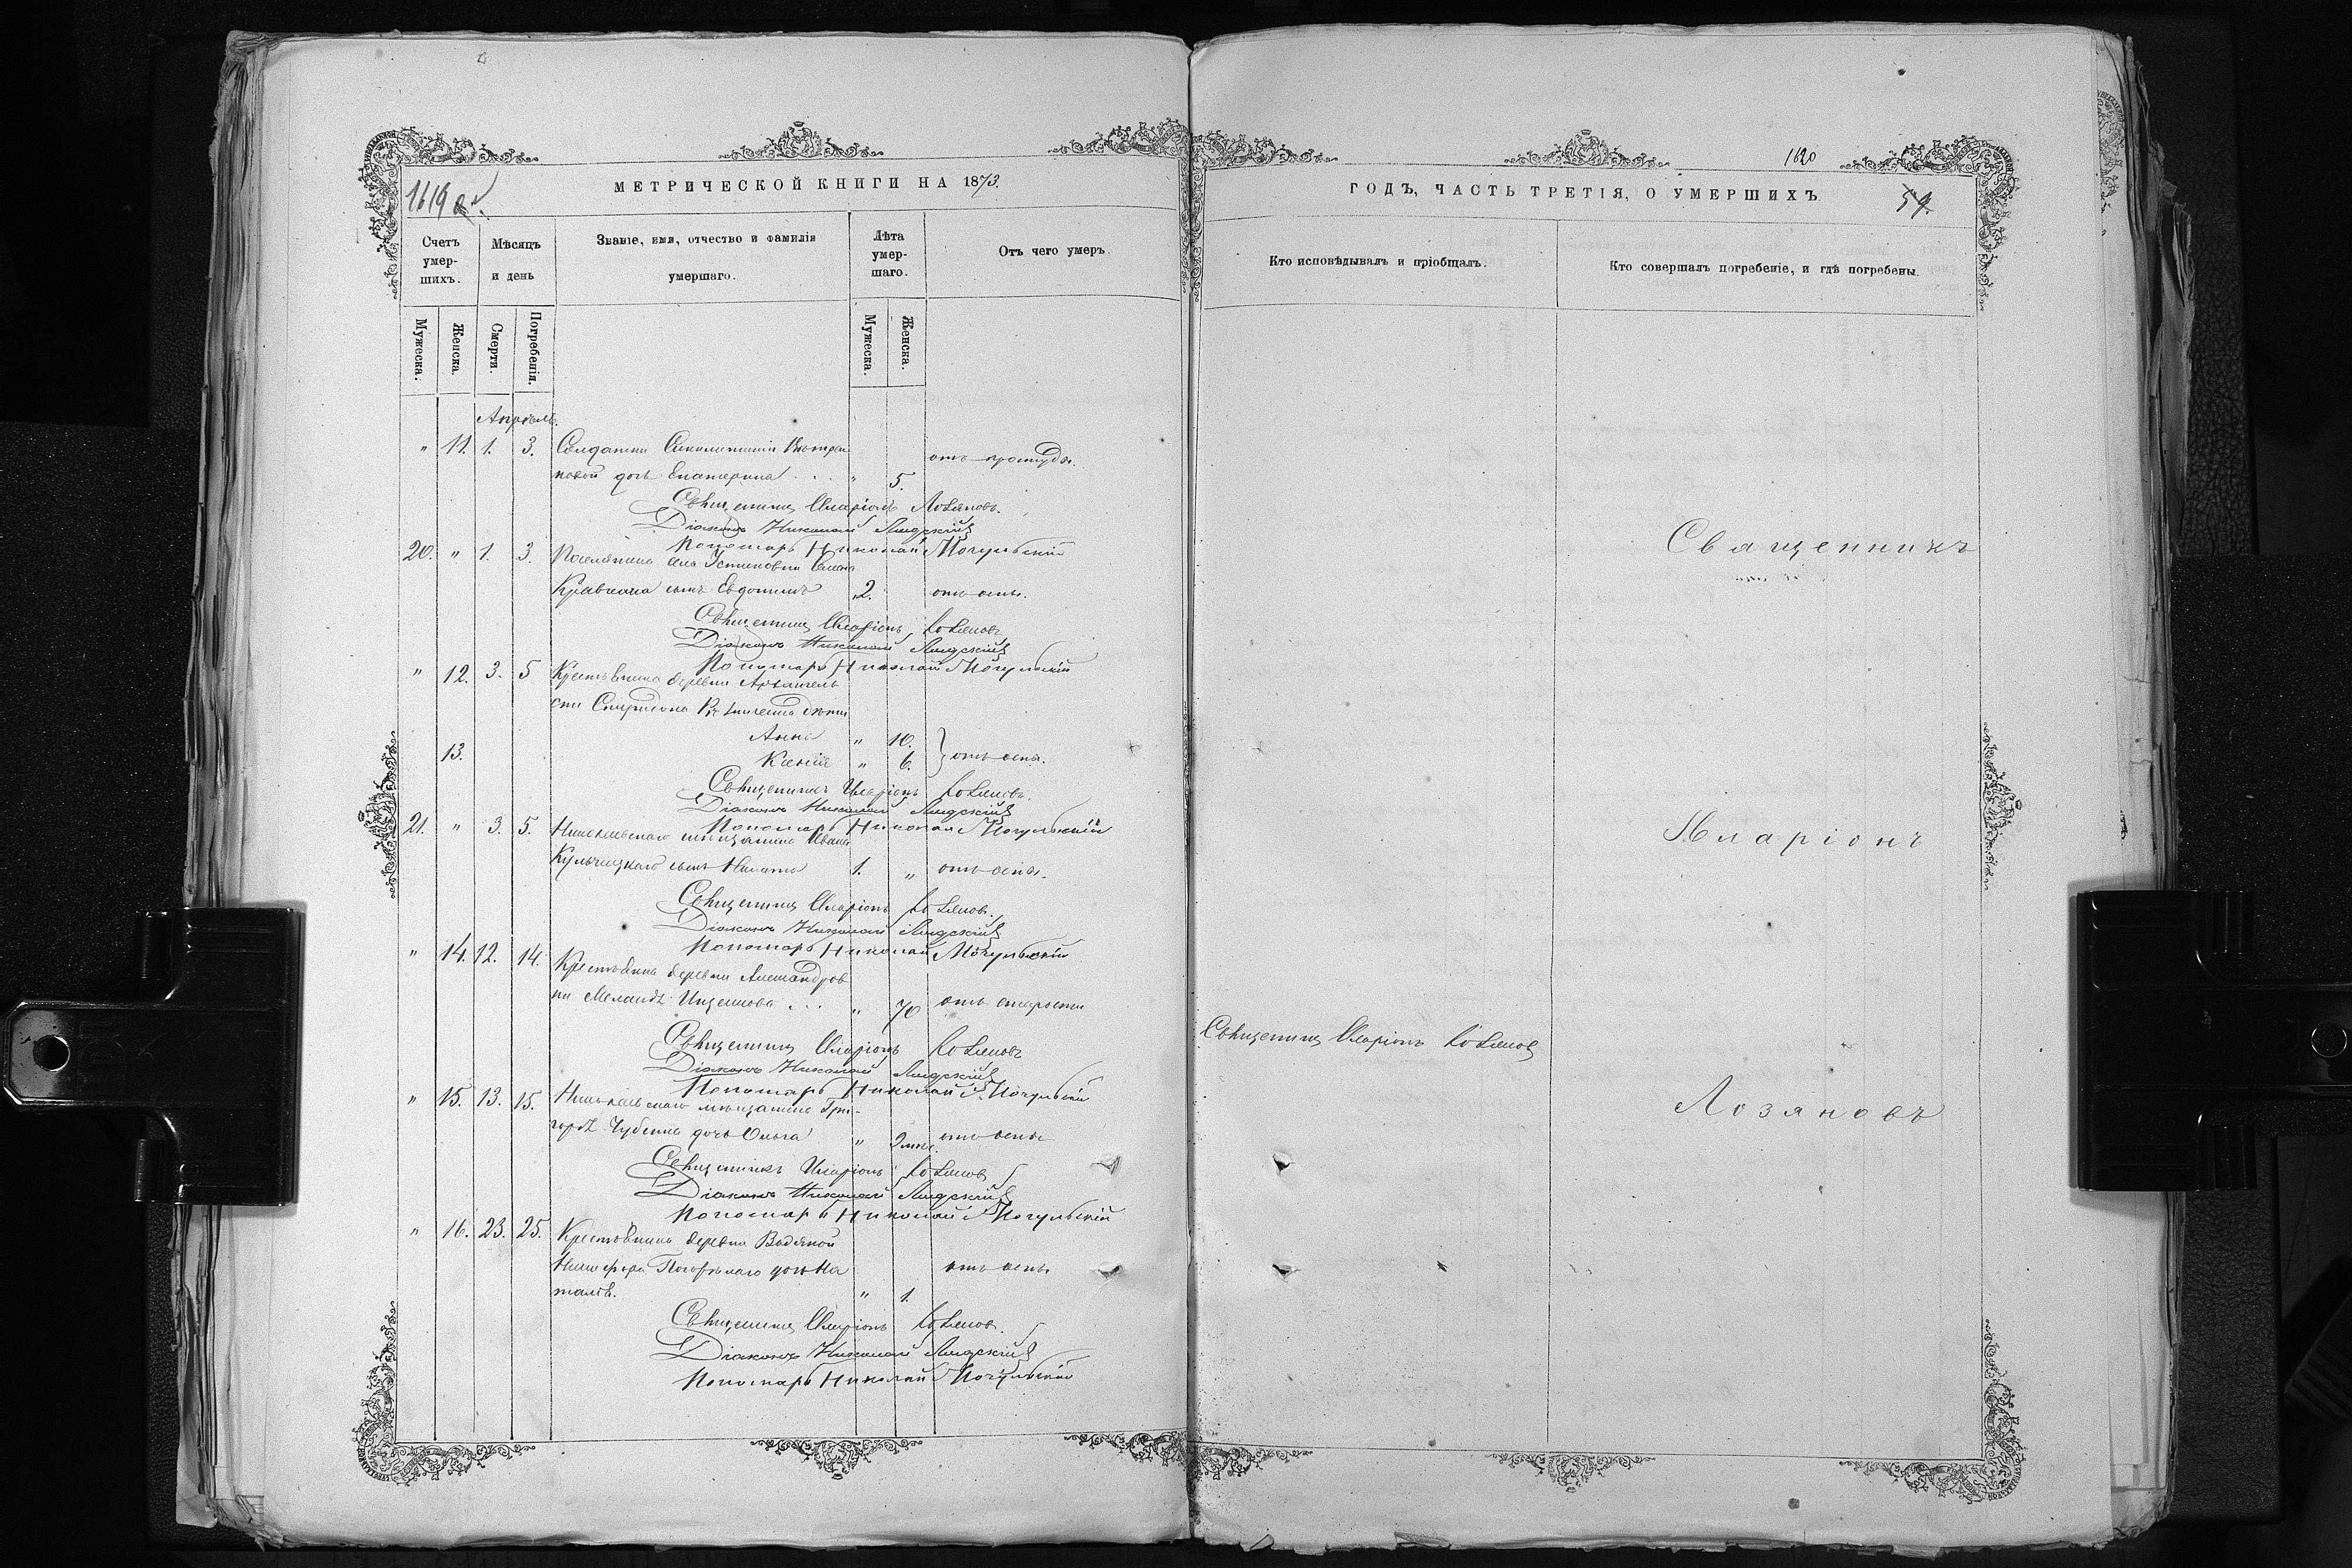 1619 об.
МЕТРИЧЕСКОЙ КНИГИ НА 1873.
Счетъ умер-шихъ.
Мѣсяцъ и день
Званіе, имя, отчество и фамилія умершаго.
Лѣта умер-шаго.
Отъ чего умеръ.
Мужеска. Женска. Смерти. Погребенія. Мужеска. Женска.
Апрѣль.
" 11. 1. 3. Солдатки
дочь Екатерина . . . " 5. отъ простуды.
Священникъ Иларіонъ Лозяновъ.
Діаконъ Николай Лидскій
Пономарь Николай Могульскій
20. " 1. 3. Поселянина села Устиновки
Кравченка сынъ Евдокимъ 2. отъ оспы.
Священникъ Иларіонъ Лозяновъ
Діаконъ Николай Лидскій
Пономарь Николай Могульскій
" 12. 3. 5 Крестьянина деревни Архангель
ски Спиридона дѣти
Анна " 10.
13. Ксенія " 6. } отъ оспы.
Священникъ Иларіонъ Лозяновъ.
Діаконъ Николай Лидскій
Пономарь Николай Могульскій
21. " 3. 5. Николаевскаго мѣщанина Ивана
Кульчицкаго сынъ Никита 1. " отъ оспы.
Священникъ Иларіонъ Лозяновъ.
Діаконъ Николай Лидскій
Пономарь Николай Могульскій
" 14. 12. 14. Крестьянка деревни Александров
ки . . . " 70 отъ старости
Священникъ Иларіонъ Лозяновъ
Діаконъ Николай Лидскій
Пономарь Николай Могульскій
" 15. 13. 15. Николаевскаго мѣщанина Гри-
горія дочь Ольга " 2 отъ оспы
Священникъ Иларіонъ Лозяновъ
Діаконъ Николай Лидскій
Пономарь Николай Могульскій
" 16. 23. 25. Крестьянина деревни Водяной
Никифора дочь На
талія. " 1. отъ оспы
Священникъ Иларіонъ Лозяновъ.
Діаконъ Николай Лидскій
Пономарь Николай Могульскій
1620
ГОДЪ, ЧАСТЬ ТРЕТІЯ, О УМЕРШИХЪ
59.
Кто исповѣдывалъ и пріобщалъ.
Кто совершалъ погребеніе, и гдѣ погребены.
Священникъ
Иларіонъ
Священникъ Иларіонъ Лозяновъ
Лозяновъ